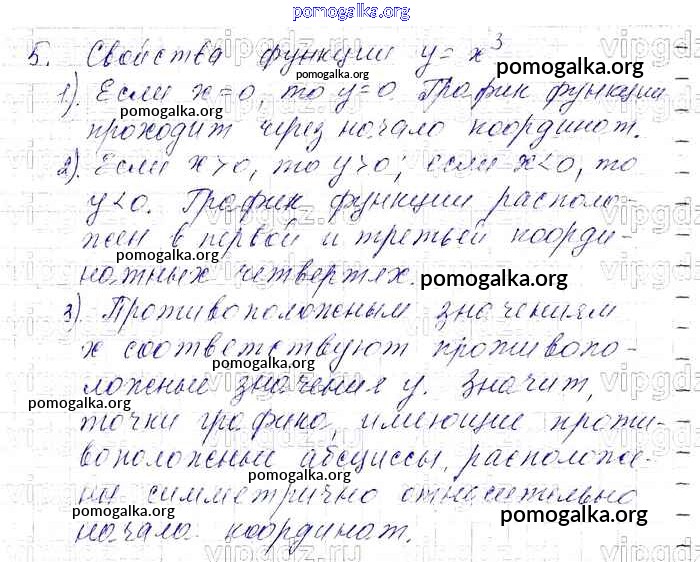 pomogalka.org
5. Свойства функции y = x³
pomogalka.org
1). Если x=0, то y=0. График функции
pomogalka.org
проходит через начало координат.
2). Если x>0, то y>0; если x<0, то
pomogalka.org
y<0. График функции располо-
жен в первой и третьей коорди-
pomogalka.org
натных четвертях. pomogalka.org
3). Противоположным значениям
x соответствуют противопо-
pomogalka.org
ложные значения y. Значит,
pomogalka.org
точки графика, имеющие проти-
воположные абсциссы, расположе-
pomogalka.org
ны симметрично относительно
pomogalka.org
pomogalka.org
начала координат.